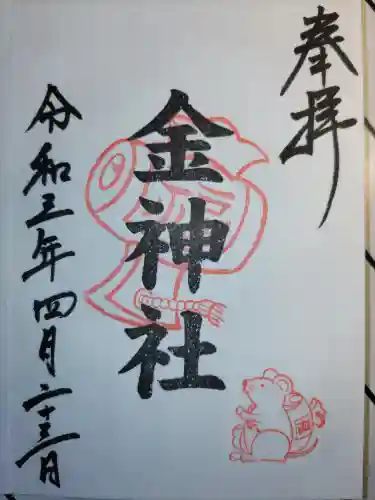 奉拝
金神社
令和三年四月二十三日